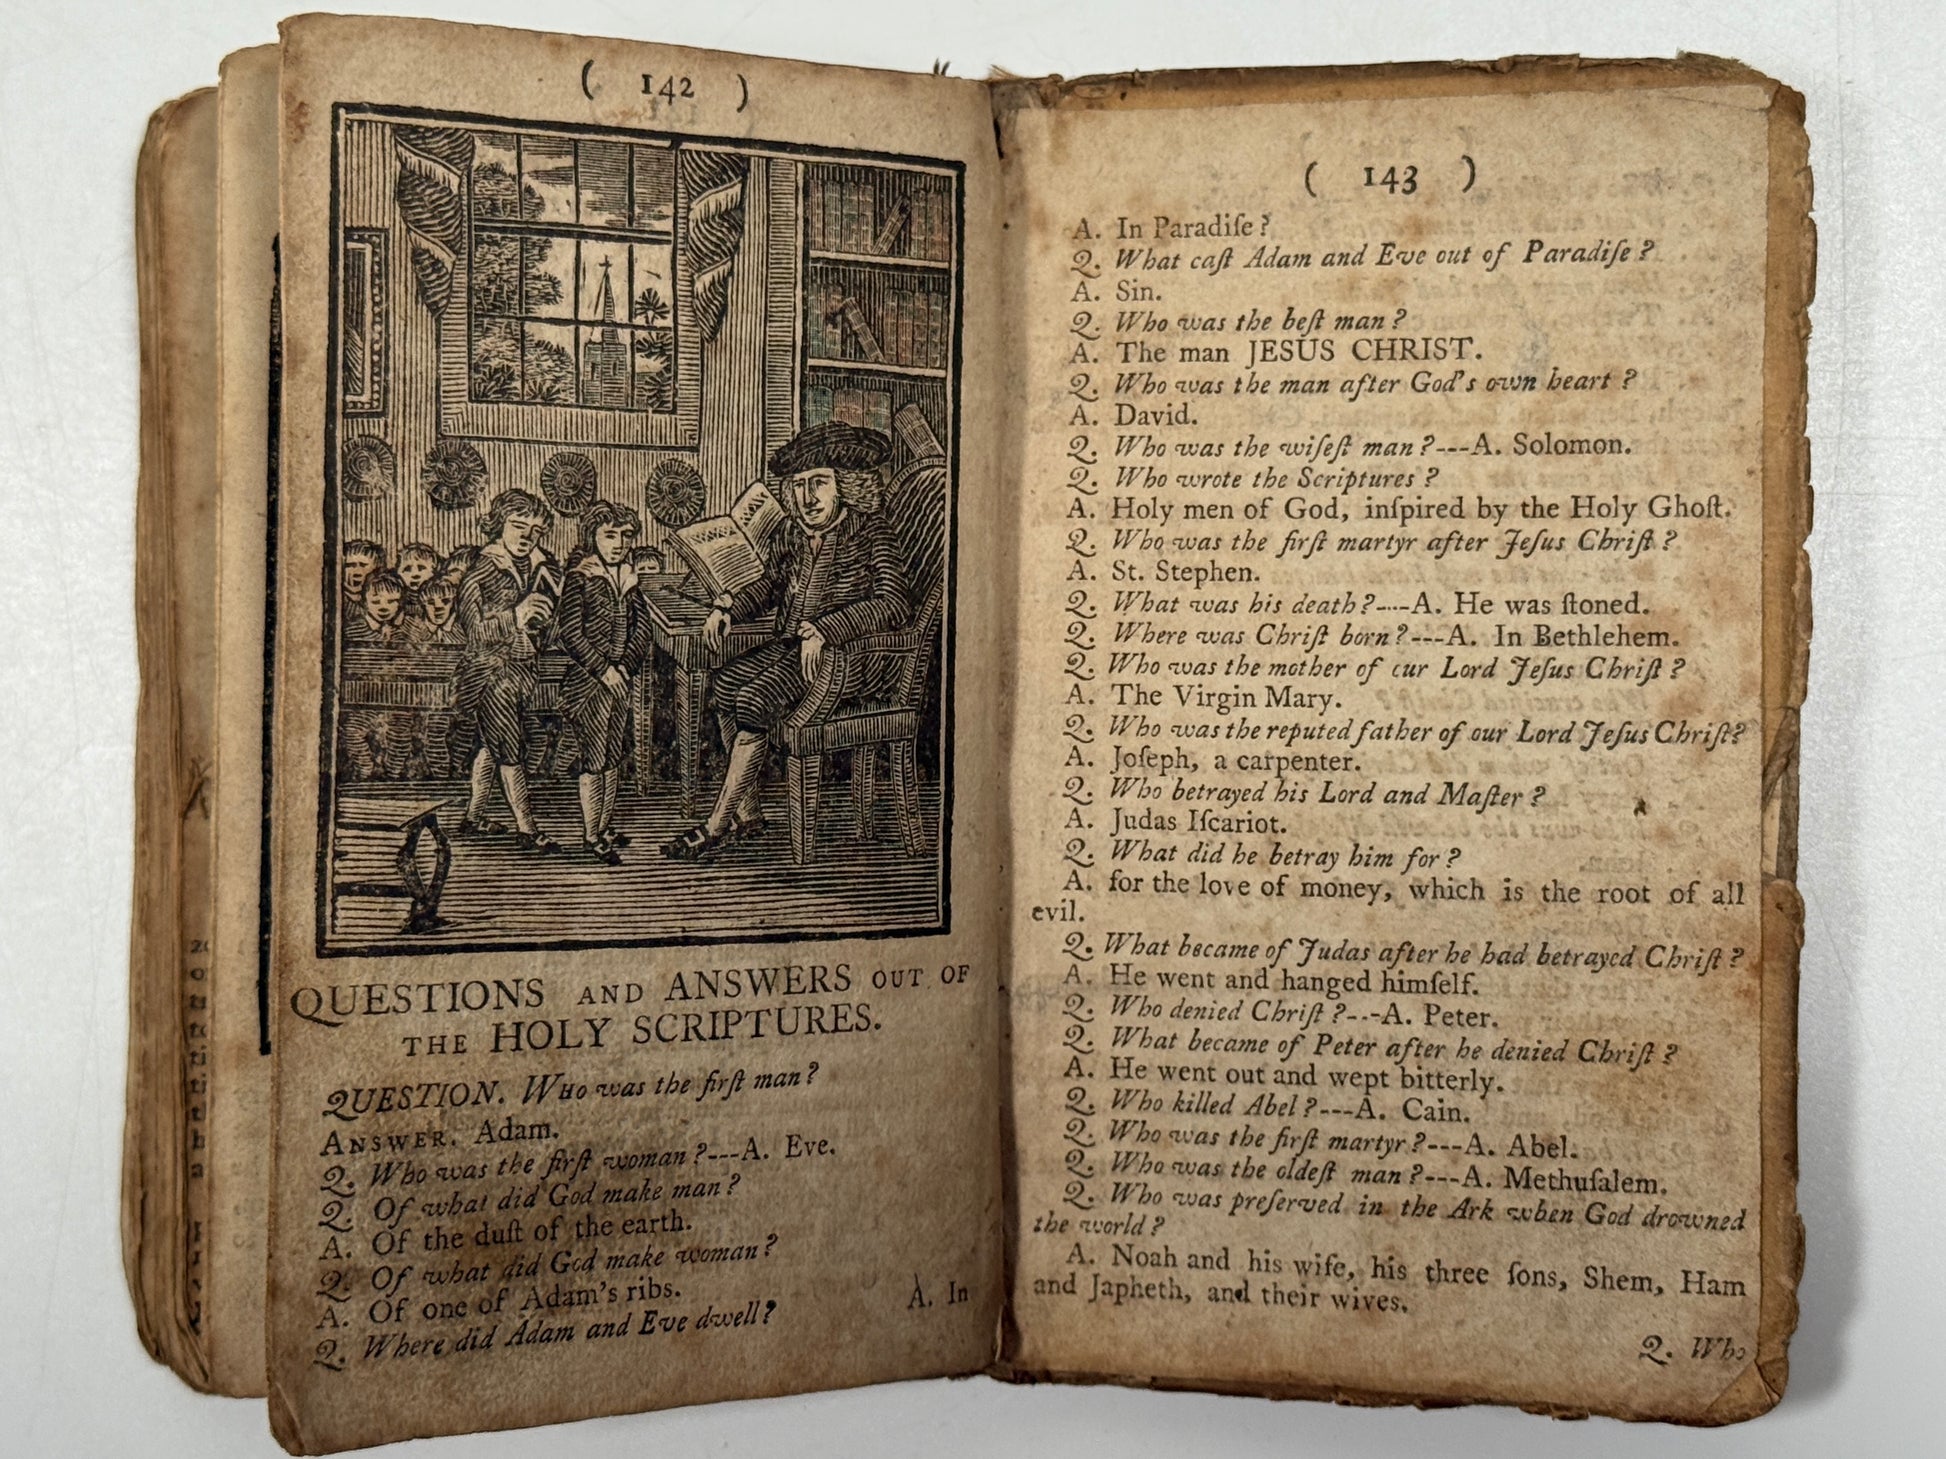 ( 142 )
QUESTIONS AND ANSWERS OUT OF
THE HOLY SCRIPTURES.
QUESTION. WHO was the firſt man?
ANSWER. Adam.
Q. Who was the firſt woman?---A. Eve.
Q. Of what did God make man?
A. Of the duſt of the earth.
Q. Of what did God make woman?
A. Of one of Adam's ribs.
Q. Where did Adam and Eve dwell?
A. In
( 143 )
A. In Paradiſe?
Q. What caſt Adam and Eve out of Paradiſe?
A. Sin.
Q. Who was the beſt man?
A. The man JESUS CHRIST.
Q. Who was the man after God's own heart?
A. David.
Q. Who was the wiſeſt man?---A. Solomon.
Q. Who wrote the Scriptures?
A. Holy men of God, inſpired by the Holy Ghoſt.
Q. Who was the firſt martyr after Jeſus Chriſt?
A. St. Stephen.
Q. What was his death?----A. He was ſtoned.
Q. Where was Chriſt born?---A. In Bethlehem.
Q. Who was the mother of cur Lord Jeſus Chriſt?
A. The Virgin Mary.
Q. Who was the reputed father of our Lord Jeſus Chriſt?
A. Joſeph, a carpenter.
Q. Who betrayed his Lord and Maſter?
A. Judas Iſcariot.
Q. What did he betray him for?
A. for the love of money, which is the root of all
evil.
Q. What became of Judas after he had betrayed Chriſt?
A. He went and hanged himſelf.
Q. Who denied Chriſt?---A. Peter.
Q. What became of Peter after he denied Chriſt?
A. He went out and wept bitterly.
Q. Who killed Abel?---A. Cain.
Q. Who was the firſt martyr?---A. Abel.
Q. Who was the oldeſt man?---A. Methuſalem.
Q. Who was preſerved in the Ark when God drowned
the world?
A. Noah and his wife, his three ſons, Shem, Ham
and Japheth, and their wives.
Q. Who